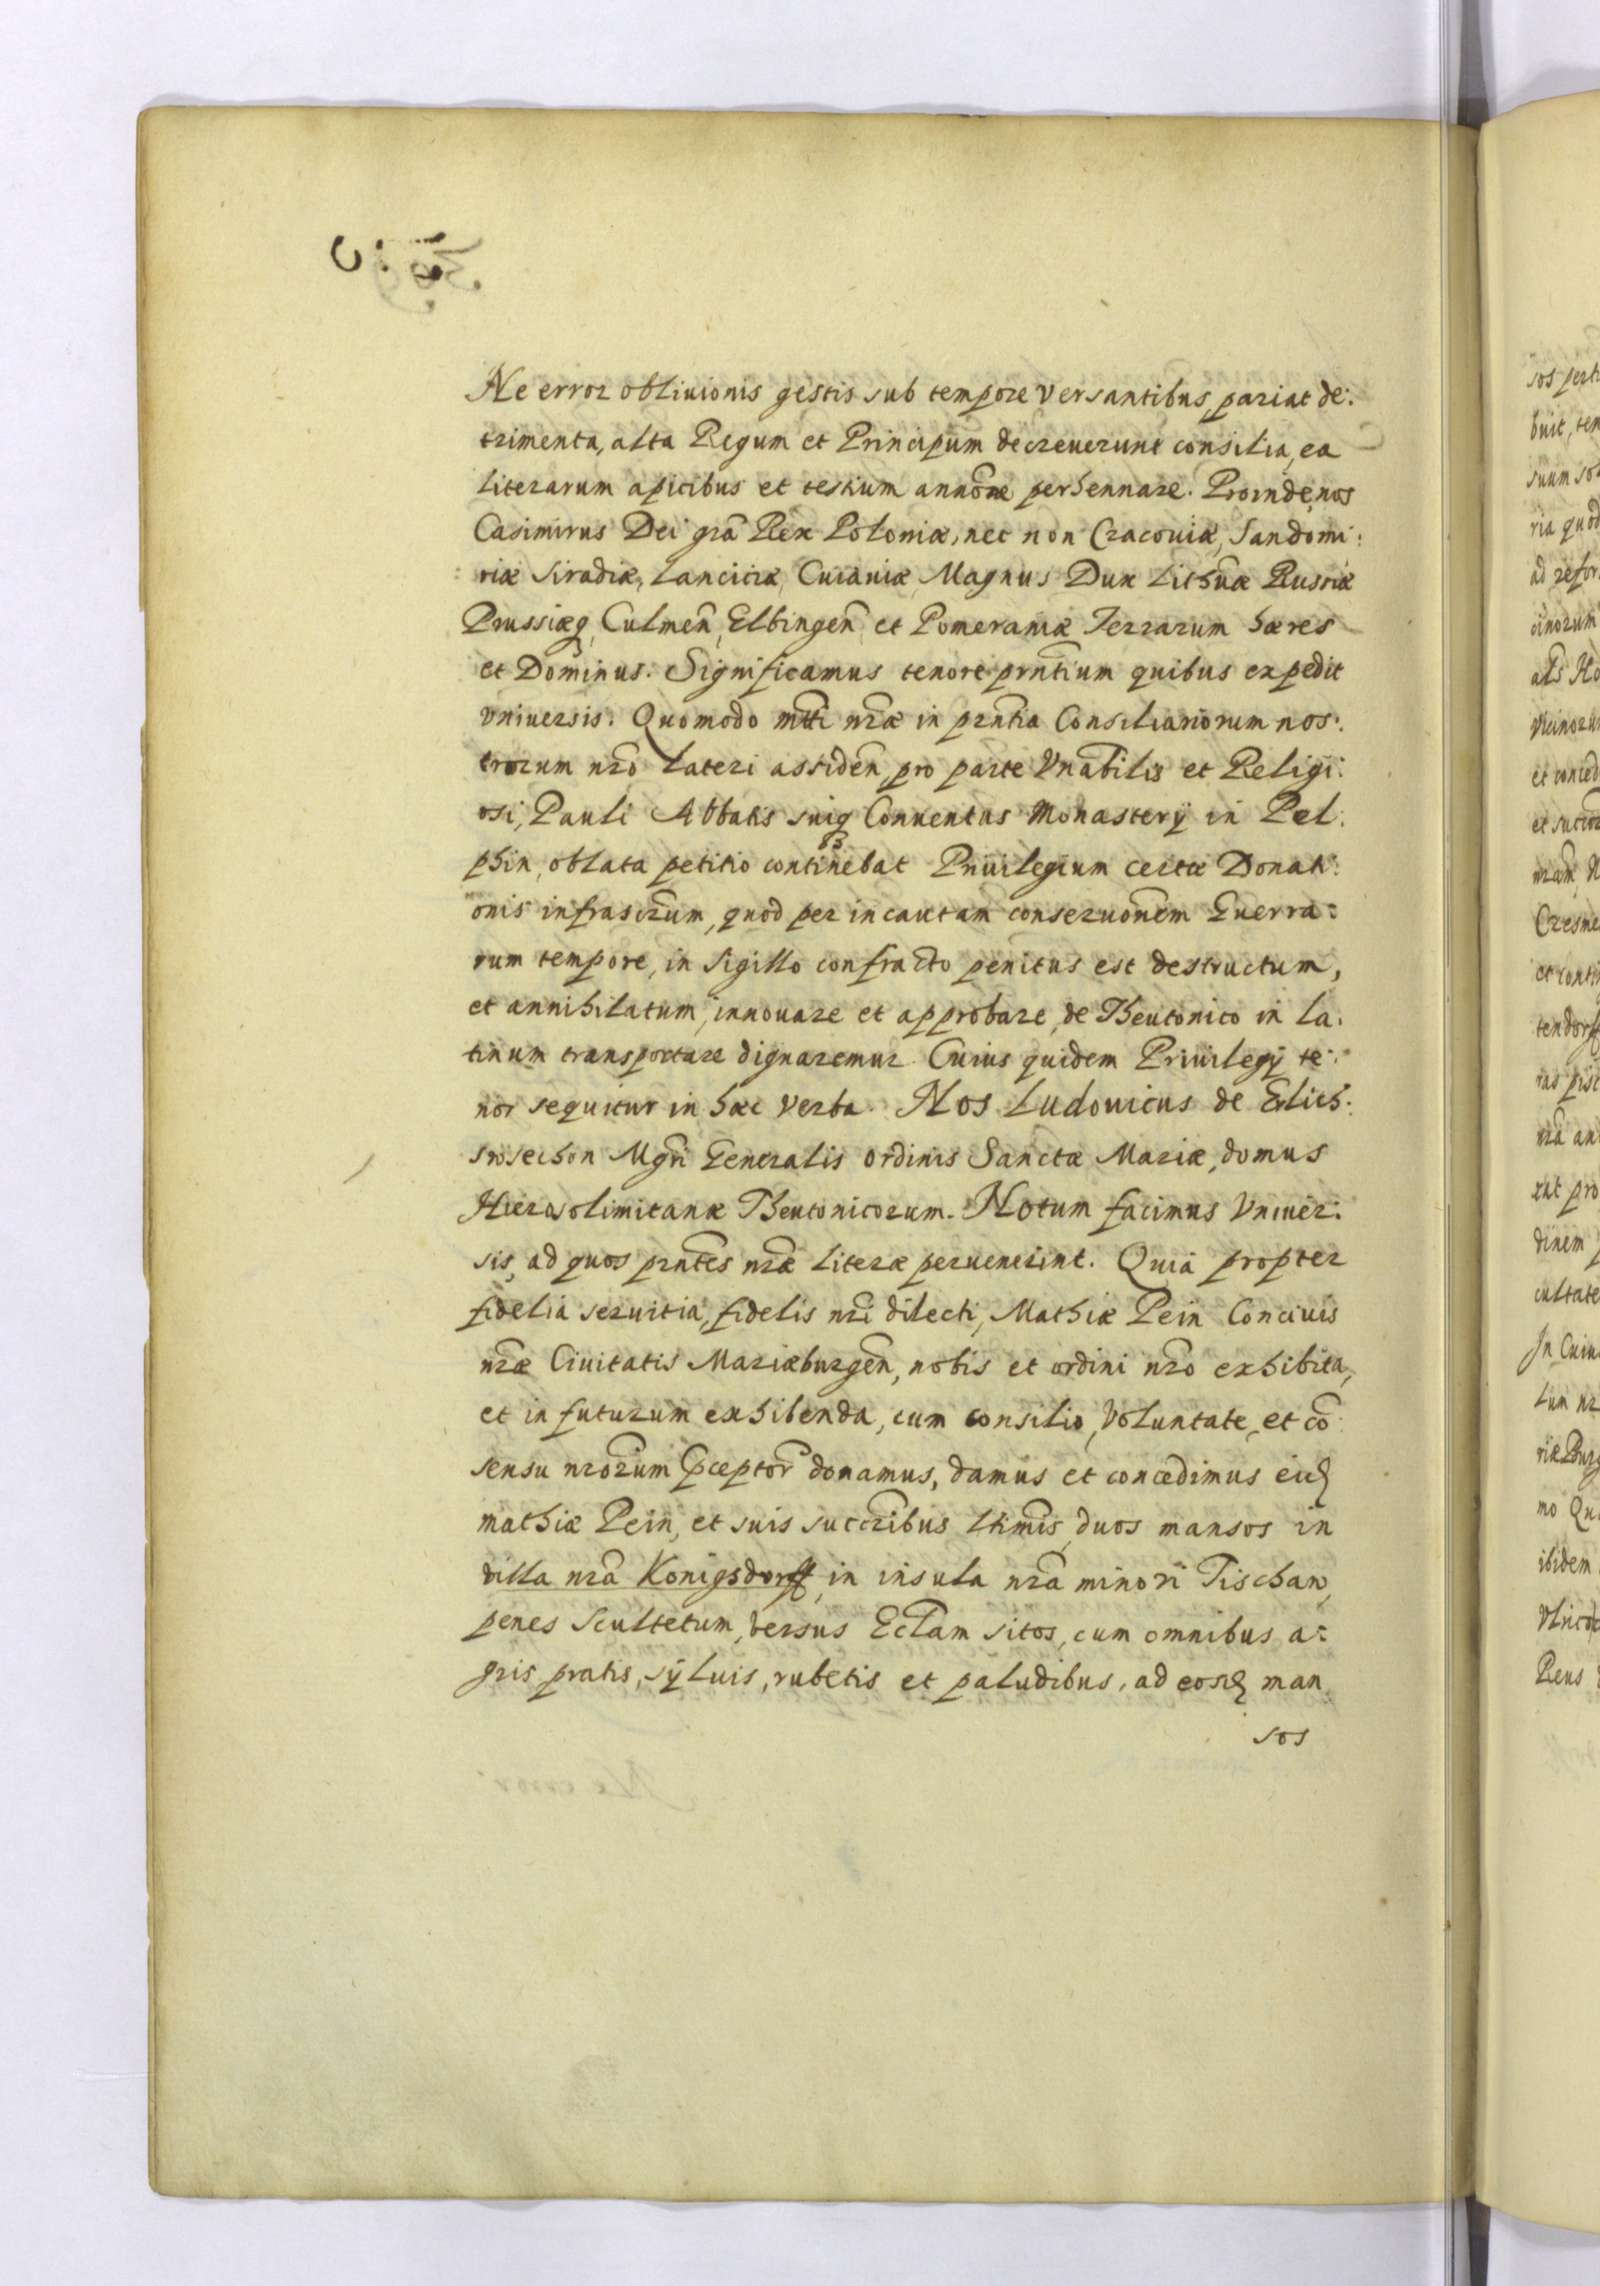 Ne error obliuionis gestis sub tempore versantibus, pariat de:
trimenta, alta Regum et Principum decreuerunt consilia, ea
literarum apicibus et testium annõne perhennare. Proinde, nos
Casimirus Dei grã Rex Poloniæ, nec non Cracouiæ, Sandomi:
riæ Siradiæ, Lanciciæ, Cuiauiæ, Magnus Dux Lithuãæ Russiæ
Prussiæq, Culmeñ, Elbingeñ et Pomeraniæ Terrarum hæres
et Dominus. Significamus tenore prñtium quibus expedit
vniuersis. Quomodo mtti nræ in prñtia Consiliariorum nos:
trorum nrõ lateri assideñ, pro parte Vnabilis et Religi:
osi, Pauli Abbatis suiq Conuentus Monasterÿ in Pel:
phin, oblata petitio continebat Priuilegium certæ Donati:
onis infrascrũm, quod per incautam conseruoñem Guerra:
rum tempore, in sigillo confracto penitus est destructum,
et annihilatum, innouare et approbare, de Theutonico in la:
tinum transportare dignaremur. Cuius quidem Priuilegÿ te:
nor sequitur in hæc verba. Nos Ludouicus de Erlich:
srosechon Mgñ Generalis ordinis Sanctæ Mariæ, domus
Hierosolimitanæ Theutonicorum. Notum facimus Vniuer:
sis, ad quos prñtes nræ literæ peruenerint. Quia propter
fidelia seruitia, fidelis nri dilecti, Mathiæ Pein Conciuis
nræ Ciuitatis Mariæburgeñ, nobis et ordini nrõ exhibita,
et in futurum exhibenda, cum consilio, voluntate, et cõ:
sensu nrõrum Pceptor̃ donamus, damus et concedimus eid
mathiæ Pein, et suis succribus ltimis, duos mansos in
villa nrã Konigsdorff, in insula nrã minori Tischaw,
penes Scultetum, versus Eclam sitos, cum omnibus a:
gris, pratis, sÿluis, rubetis et paludibus, ad eosd man
sos